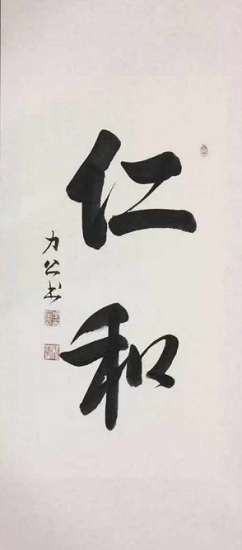 仁和
力公书